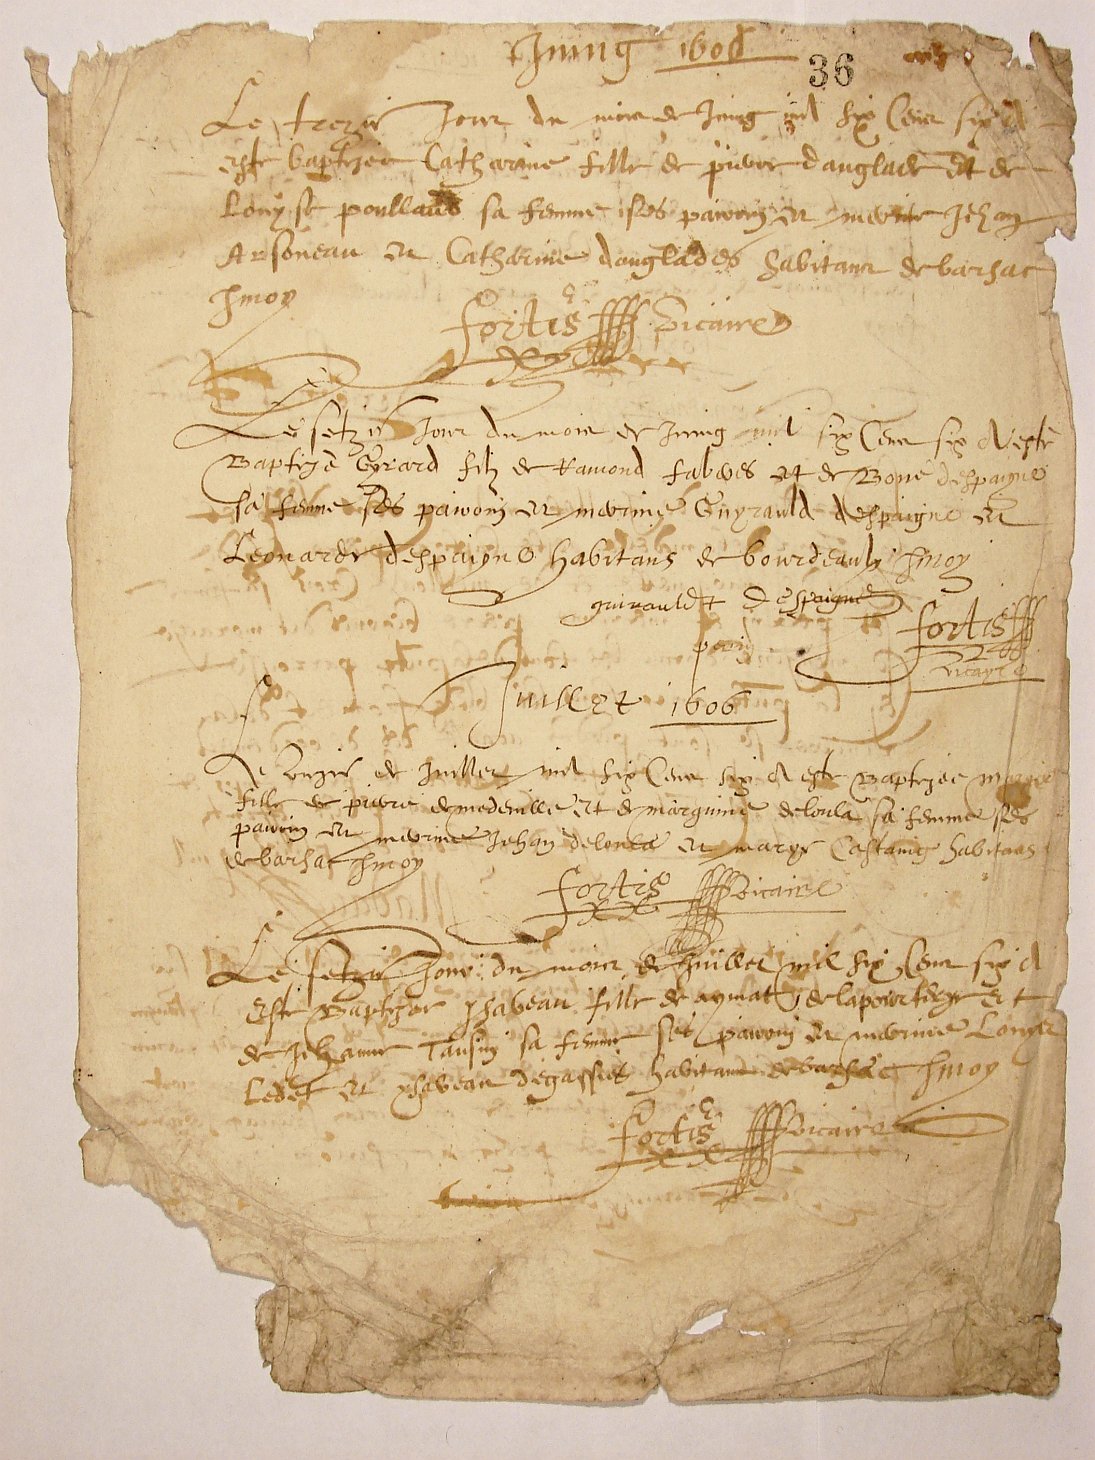 Juing 1606
36
Le trezie Jour du mois de Juing mil six Cens six A
este baptizee Catherine fille de pierre danglade Et de
Louyse poullaud sa femme ses parrein et merrine Jehan
Arsoneau et Catherine danglades habitans de barsac
fortis vicaire
Le setzie Jour du mois de Juing mil six Cens six A este
Baptize Gyrard filz de Ramond fabves et de Bone despaigne
sa femme ses parrein et merrine Guyrauld despaigne et
Leonarde despaigne habitans de bourdeaulx
guirauldt Despaigne
fortis
parin
vicayre
Juillet 1606
Le de Juillet mil six Cens six A este Baptizee
fille de pierre demedeville Et de marguine deloula sa femme ses
parrein et merrine Jehan deloula et marye Castaing habitans
de barsac
fortis vicaire
Le setzie Jour du mois de Juillet mil six Cens six A
Este Baptizee ysabeau fille de aymat Et
de Jehanne Tausin sa femme ses parrein et merrine
Ledet et ysabeau degassies habitans de barsac
fortis vicaire